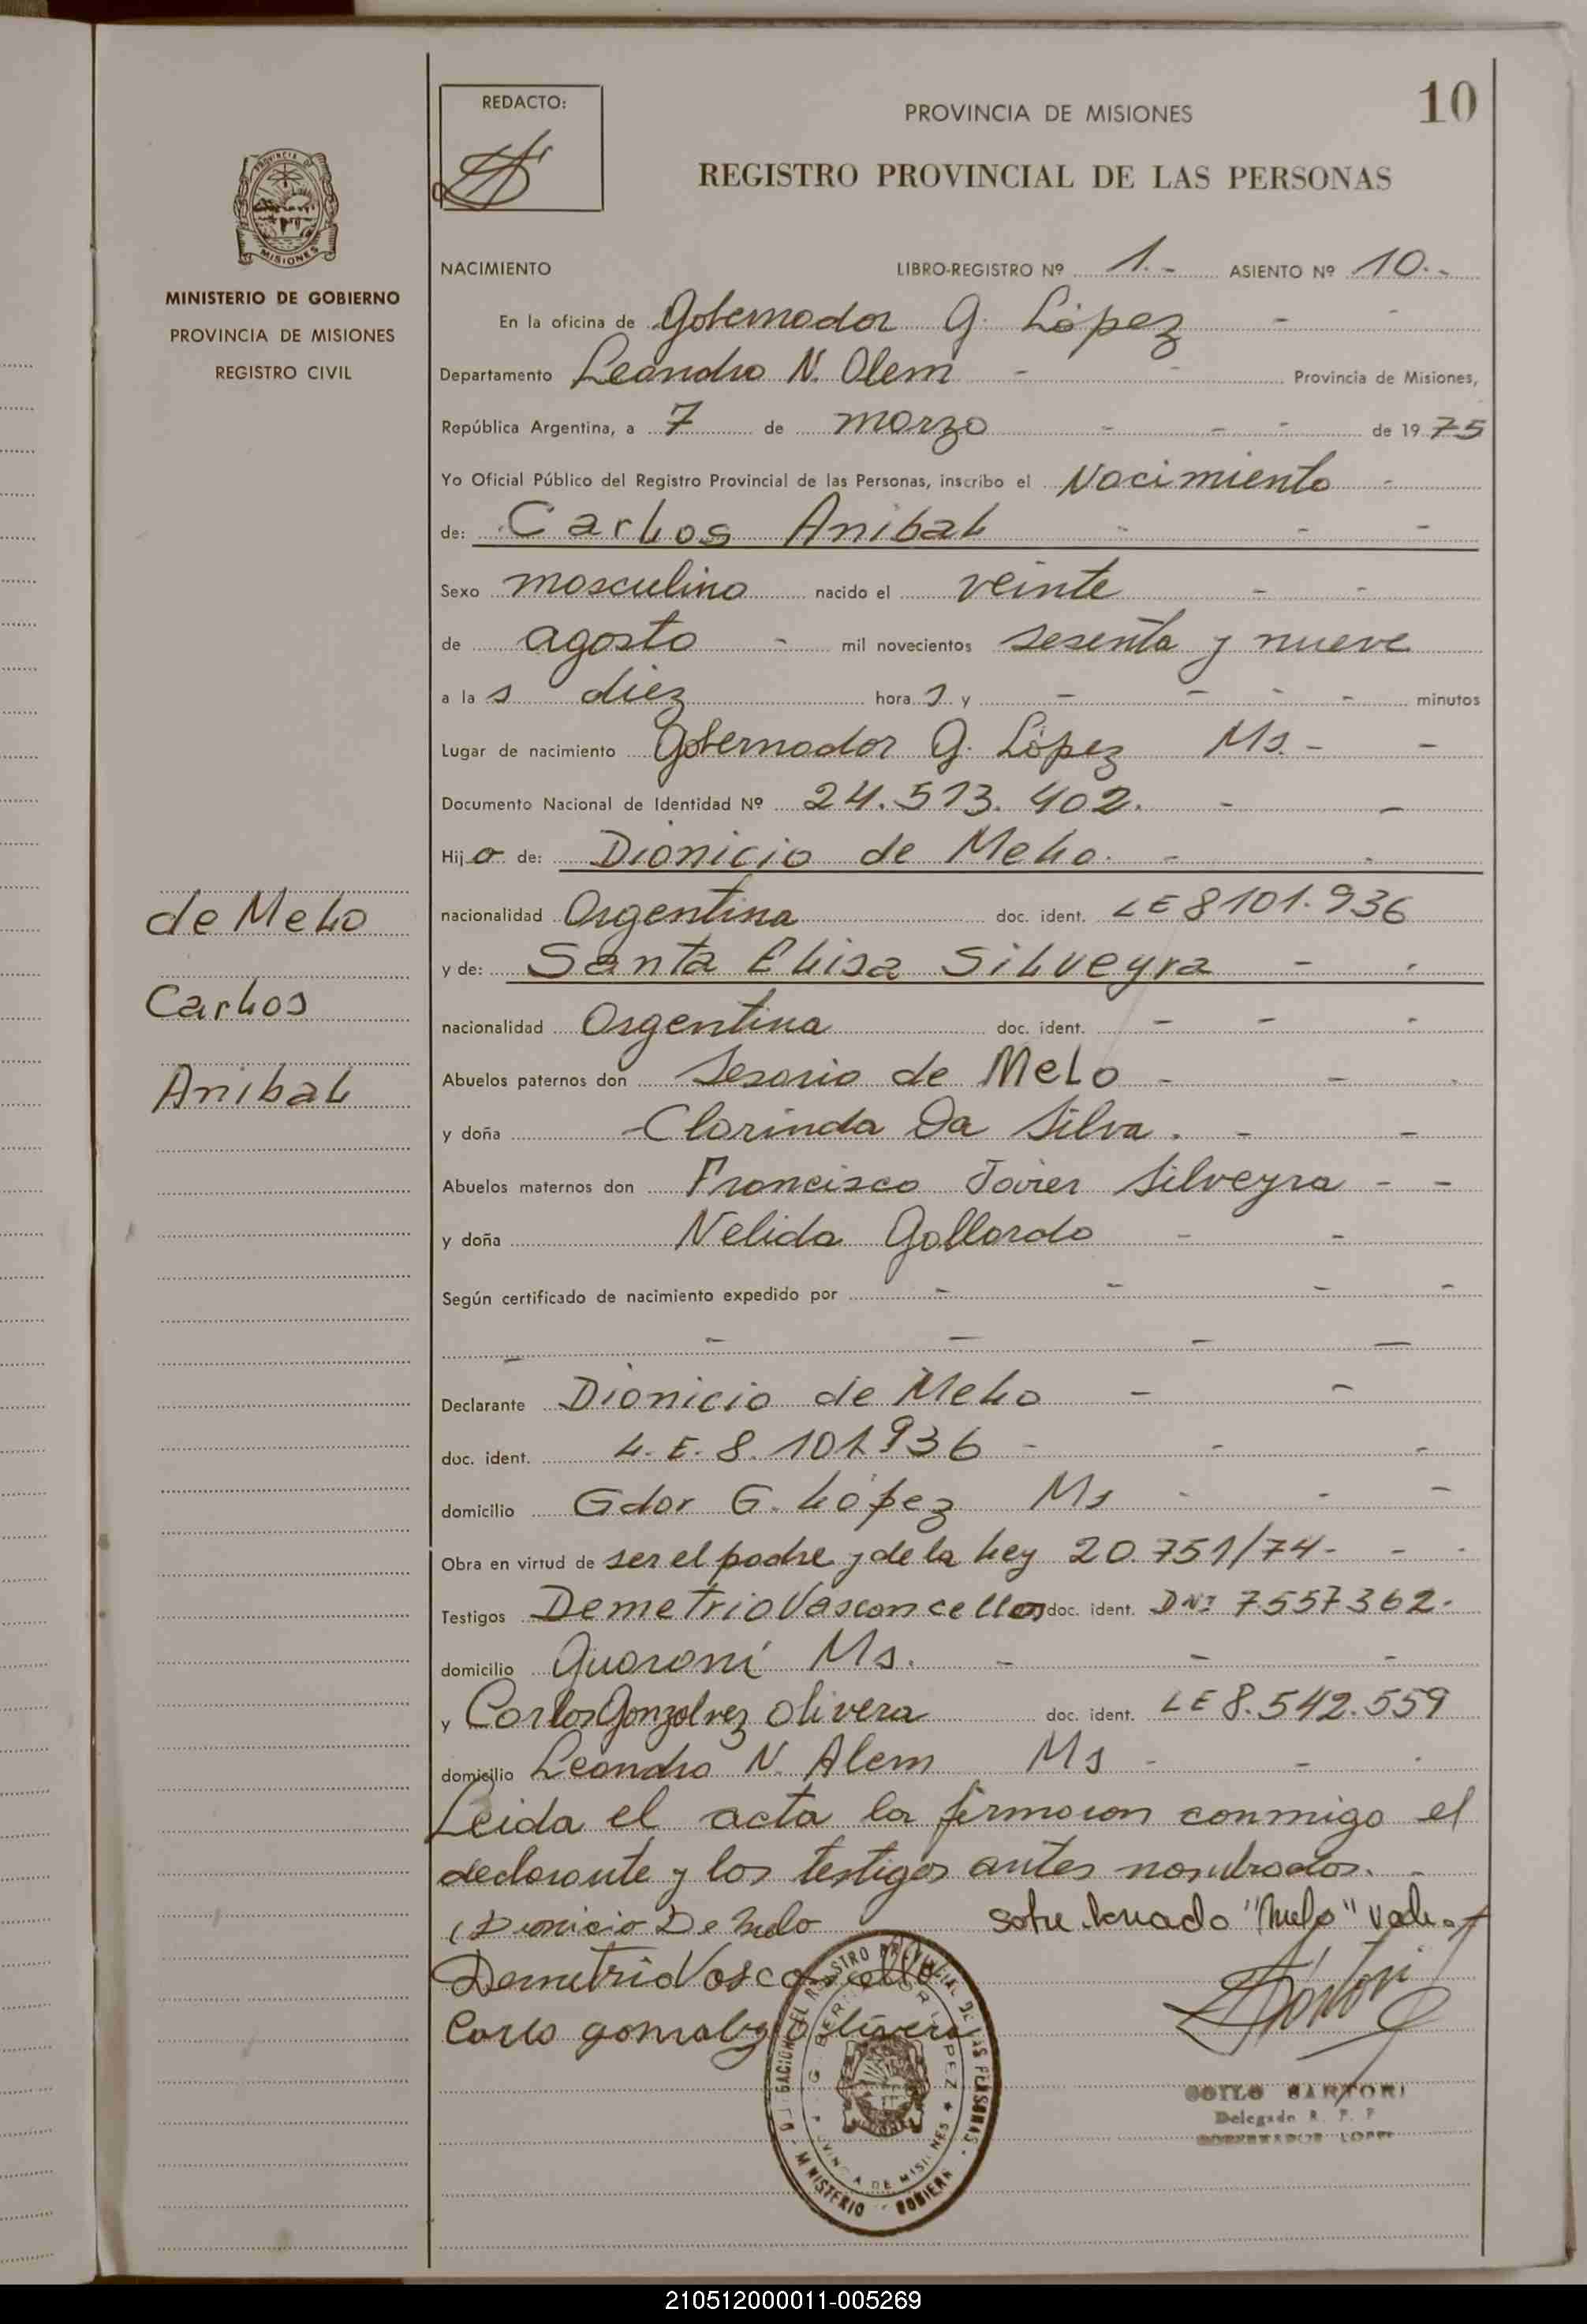 REDACTO:
PROVINCIA DE MISIONES
10
REGISTRO PROVINCIAL DE LAS PERSONAS
MISIONES
MINISTERIO DE GOBIERNO
PROVINCIA DE MISIONES
REGISTRO CIVIL
NACIMIENTO LIBRO-REGISTRO Nº 1.- ASIENTO Nº 10.-
En la oficina de Gobernador G. López - -
Departamento Leandro N. Alem - - Provincia de Misiones,
República Argentina, a 7 de marzo - - - de 1975
Yo Oficial Público del Registro Provincial de las Personas, inscribo el Nacimiento -
de: Carlos Anibal - - -
Sexo masculino nacido el veinte - -
de agosto - mil novecientos sesenta y nueve
a las diez horas y - - - - minutos
Lugar de nacimiento Gobernador G. López Ms. - -
Documento Nacional de Identidad Nº 24.513.402. - -
Hijo de: Dionicio de Melo. - -
nacionalidad Argentina doc. ident. LE 8101.936
y de: Santa Elisa Silveyra - -
nacionalidad Argentina doc. ident. - - -
Abuelos paternos don Sesario de Melo - - -
y doña Clarinda Da Silva. - -
Abuelos maternos don Francisco Javier Silveyra - -
y doña Nelida Gallardo - -
Según certificado de nacimiento expedido por - - - -
- - - - -
Declarante Dionicio de Melo - -
doc. ident. L.E. 8.101.936 - - -
domicilio Gdor G. López Ms - - -
Obra en virtud de ser el padre y de la Ley 20.751/74- - -
Testigos Demetrio Vasconcellos doc. ident. DNI 7557362.
domicilio Guaraní Ms. - - -
y Carlos Gonzalvez Olivera doc. ident. LE 8.542.559
domicilio Leandro N. Alem Ms - - -
Leida el acta la firmaron conmigo el
declarante y los testigos antes nombrados. -
Dionicio De Melo
sobre borrado "Melo" vale.-
Demetrio Vasconcello
Carlo gonsalez Olivera
de Melo
Carlos
Anibal
DELEGACION DEL REGISTRO PROVINCIAL DE LAS PERSONAS
GOBERNADOR LOPEZ
PROVINCIA DE MISIONES
MINISTERIO GOBIERNO
SARTORI
Delegado R. P. P.
GOBERNADOR LOPEZ
210512000011-005269